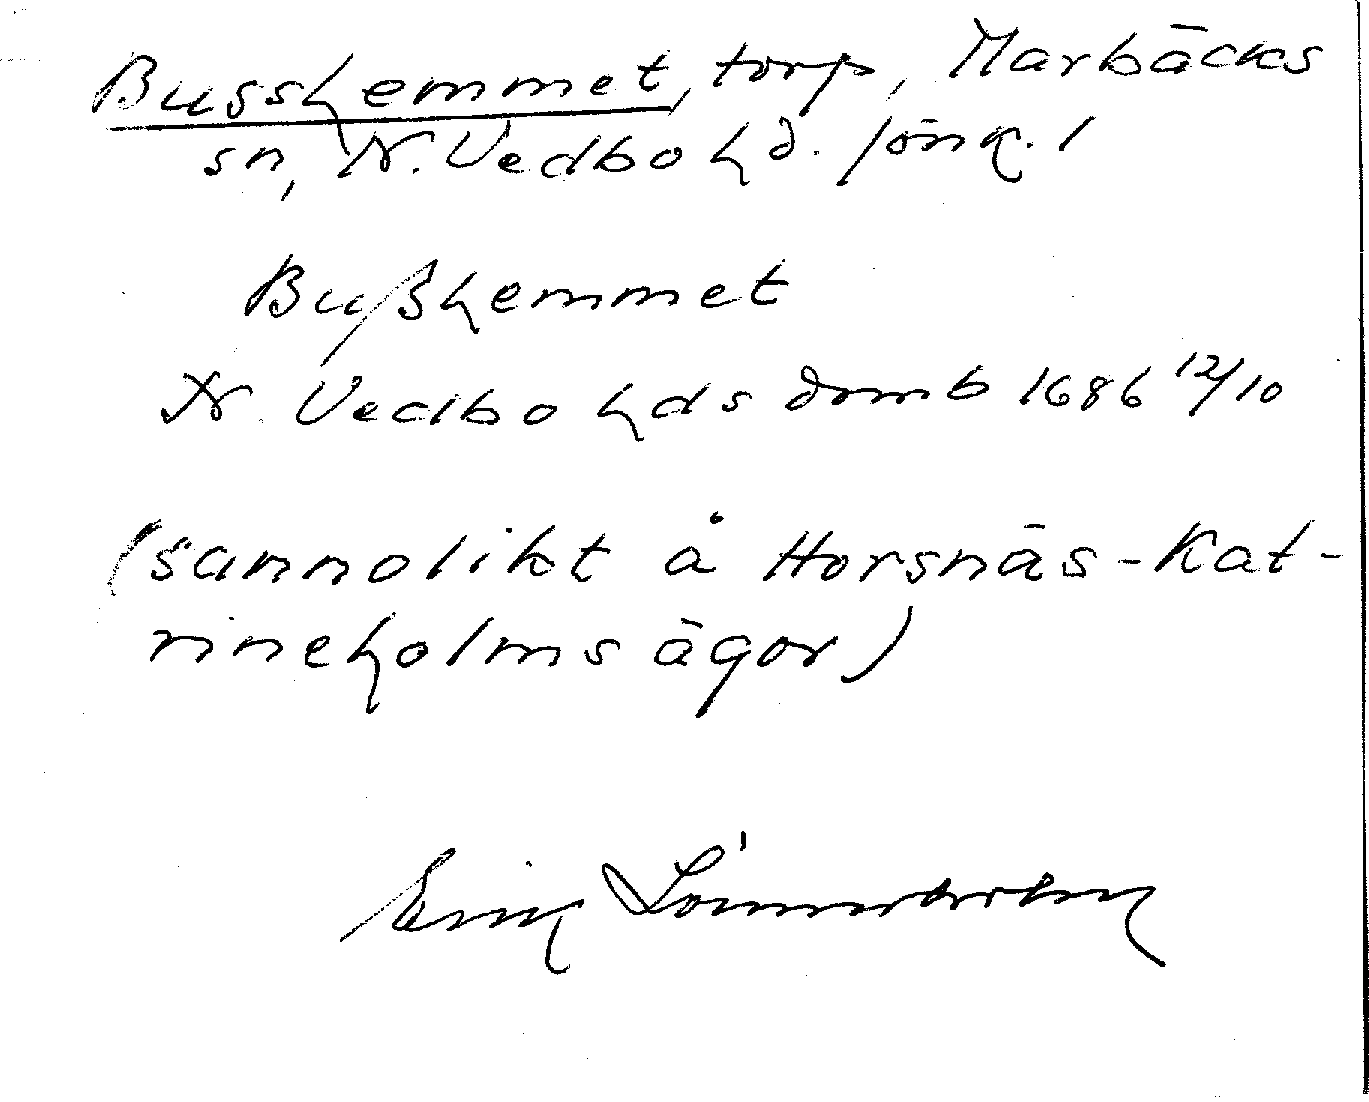 Busshemmet, torp, Marbäcks
sn, N. Vedbo hd. Jönk. l
Bußhemmet
N. Vedbo hds domb 1686 12/10
(sannolikt å Horsnäs-Kat-
rineholms ägor)